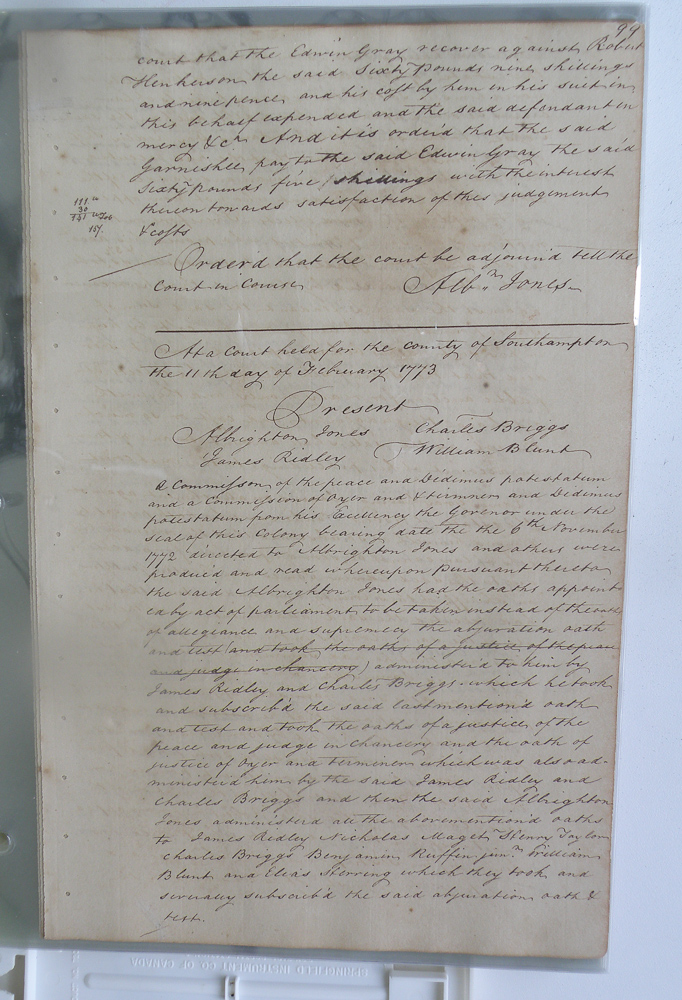 99
court that the Edwin Gray recover against Robert
Henherson the said Sixty Pounds nine shillings
and nine pence and his cost by him in his suit in
this behalf expended and the said defendant in
mercy &c. And it is order'd that the said
Garnishee pay to the said Edwin Gray the said
Sixty pounds five shillings with the interest
thereon towards satisfaction of this judgement
& costs
111
30
141
157
Order'd that the court be adjourn'd till the
Court in Course Alb.n Jones
At a Court held for the county of Southampton
the 11th day of February 1773
Present
Albrighton Jones Charles Briggs
James Ridley William Blunt
A Commission of the peace and Dedimus potestatum
and a Commission of Oyer and & terminer and Dedimus
potestatum from his Excellency the Govenor under the
seal of this Colony bearing date the the 6th November
1772 directed to Albrighton Jones and others were
produced and read whereupon pursuant thereto
the said Albrighton Jones had the oaths appoint
ed by act of parliament to be taken instead of the oath
of allegiance and supremecy the abjuration oath
and test (and took the oaths of a justice of the peace
and judge in chancery) administer'd to him by
James Ridley and Charles Briggs which he took
and subscrib'd the said last mention'd oath
and test and took the oaths of a justice of the
peace and judge in Chancery and the oath of
justice of Oyer and terminer which was also ad-
minister'd him by the said James Ridley and
Charles Briggs and then the said Albrighton
Jones administer'd all the abovemention'd oaths
to James Ridley Nicholas Maget Henry Taylor
Charles Briggs Benjamin Ruffin jun.r William
Blunt and Elias Herring which they took and
severally subscrib'd the said abjuration oath &
test.
SPRINGFIELD INSTRUMENT CO. OF CANADA